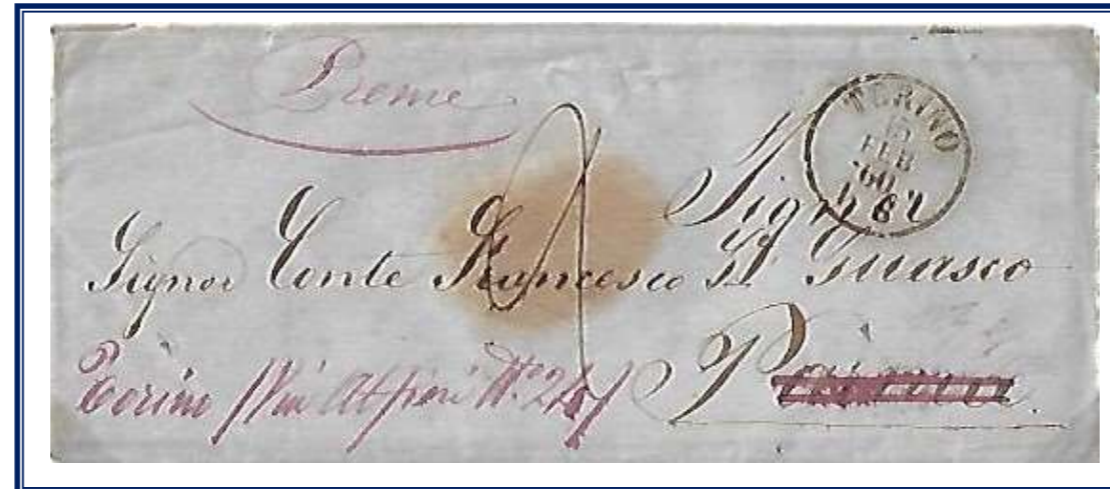 Preme
TORINO
FEB
60
Signor
Signor Conte Francesco Di Guasco
Torino /Via Alfieri N.° 24/
Parma